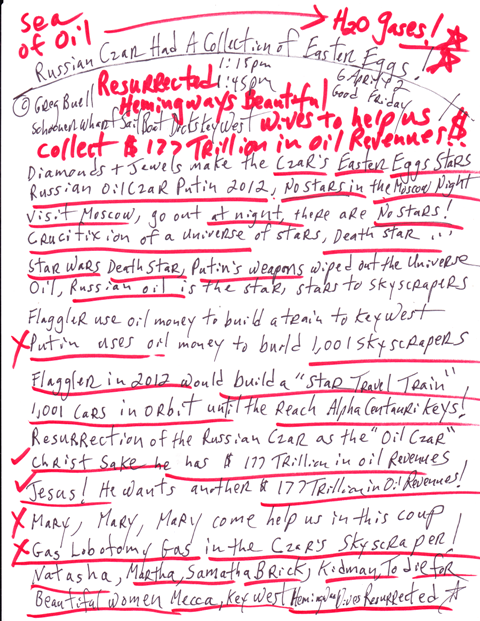 sea of Oil → H2O gases!
Russian Czar Had A Collection of Easter Eggs!
1:15pm
1:45pm
6 April 12
Good Friday
© Greg Buell
Schooner Wharf Sail Boat Docks Key West
Resurrected Hemingways Beautiful Wives to help us
collect $177 Trillion in Oil Revenues!$
Diamonds + Jewels make the Czar's Easter Eggs Stars
Russian Oil Czar Putin 2012, No stars in the Moscow Night
Visit Moscow, go out at night, there are No stars!
Crucifixion of a universe of stars, Death star...
Star Wars Death Star, Putin's weapons wiped out the Universe
Oil, Russian oil is the star, stars to skyscrapers
Flaggler use oil money to build a train to Key West
X Putin uses oil money to build 1,001 skyscrapers
Flaggler in 2012 would build a "Star Travel Train"
1,001 cars in orbit until the reach Alpha Centauri Keys!
Resurrection of the Russian Czar as the "Oil Czar"
✓ Christ Sake he has $177 Trillion in oil Revenues
✓ Jesus! He wants another $177 Trillion in Oil Revenues!
X Mary, Mary, Mary come help us in this coup
X Gas Lobotomy Gas in the Czar's Skyscraper!
Natasha, Martha, Samatha Brick, Kidman, To die for
Beautiful women Mecca, Key West Hemingway Wives Resurrected